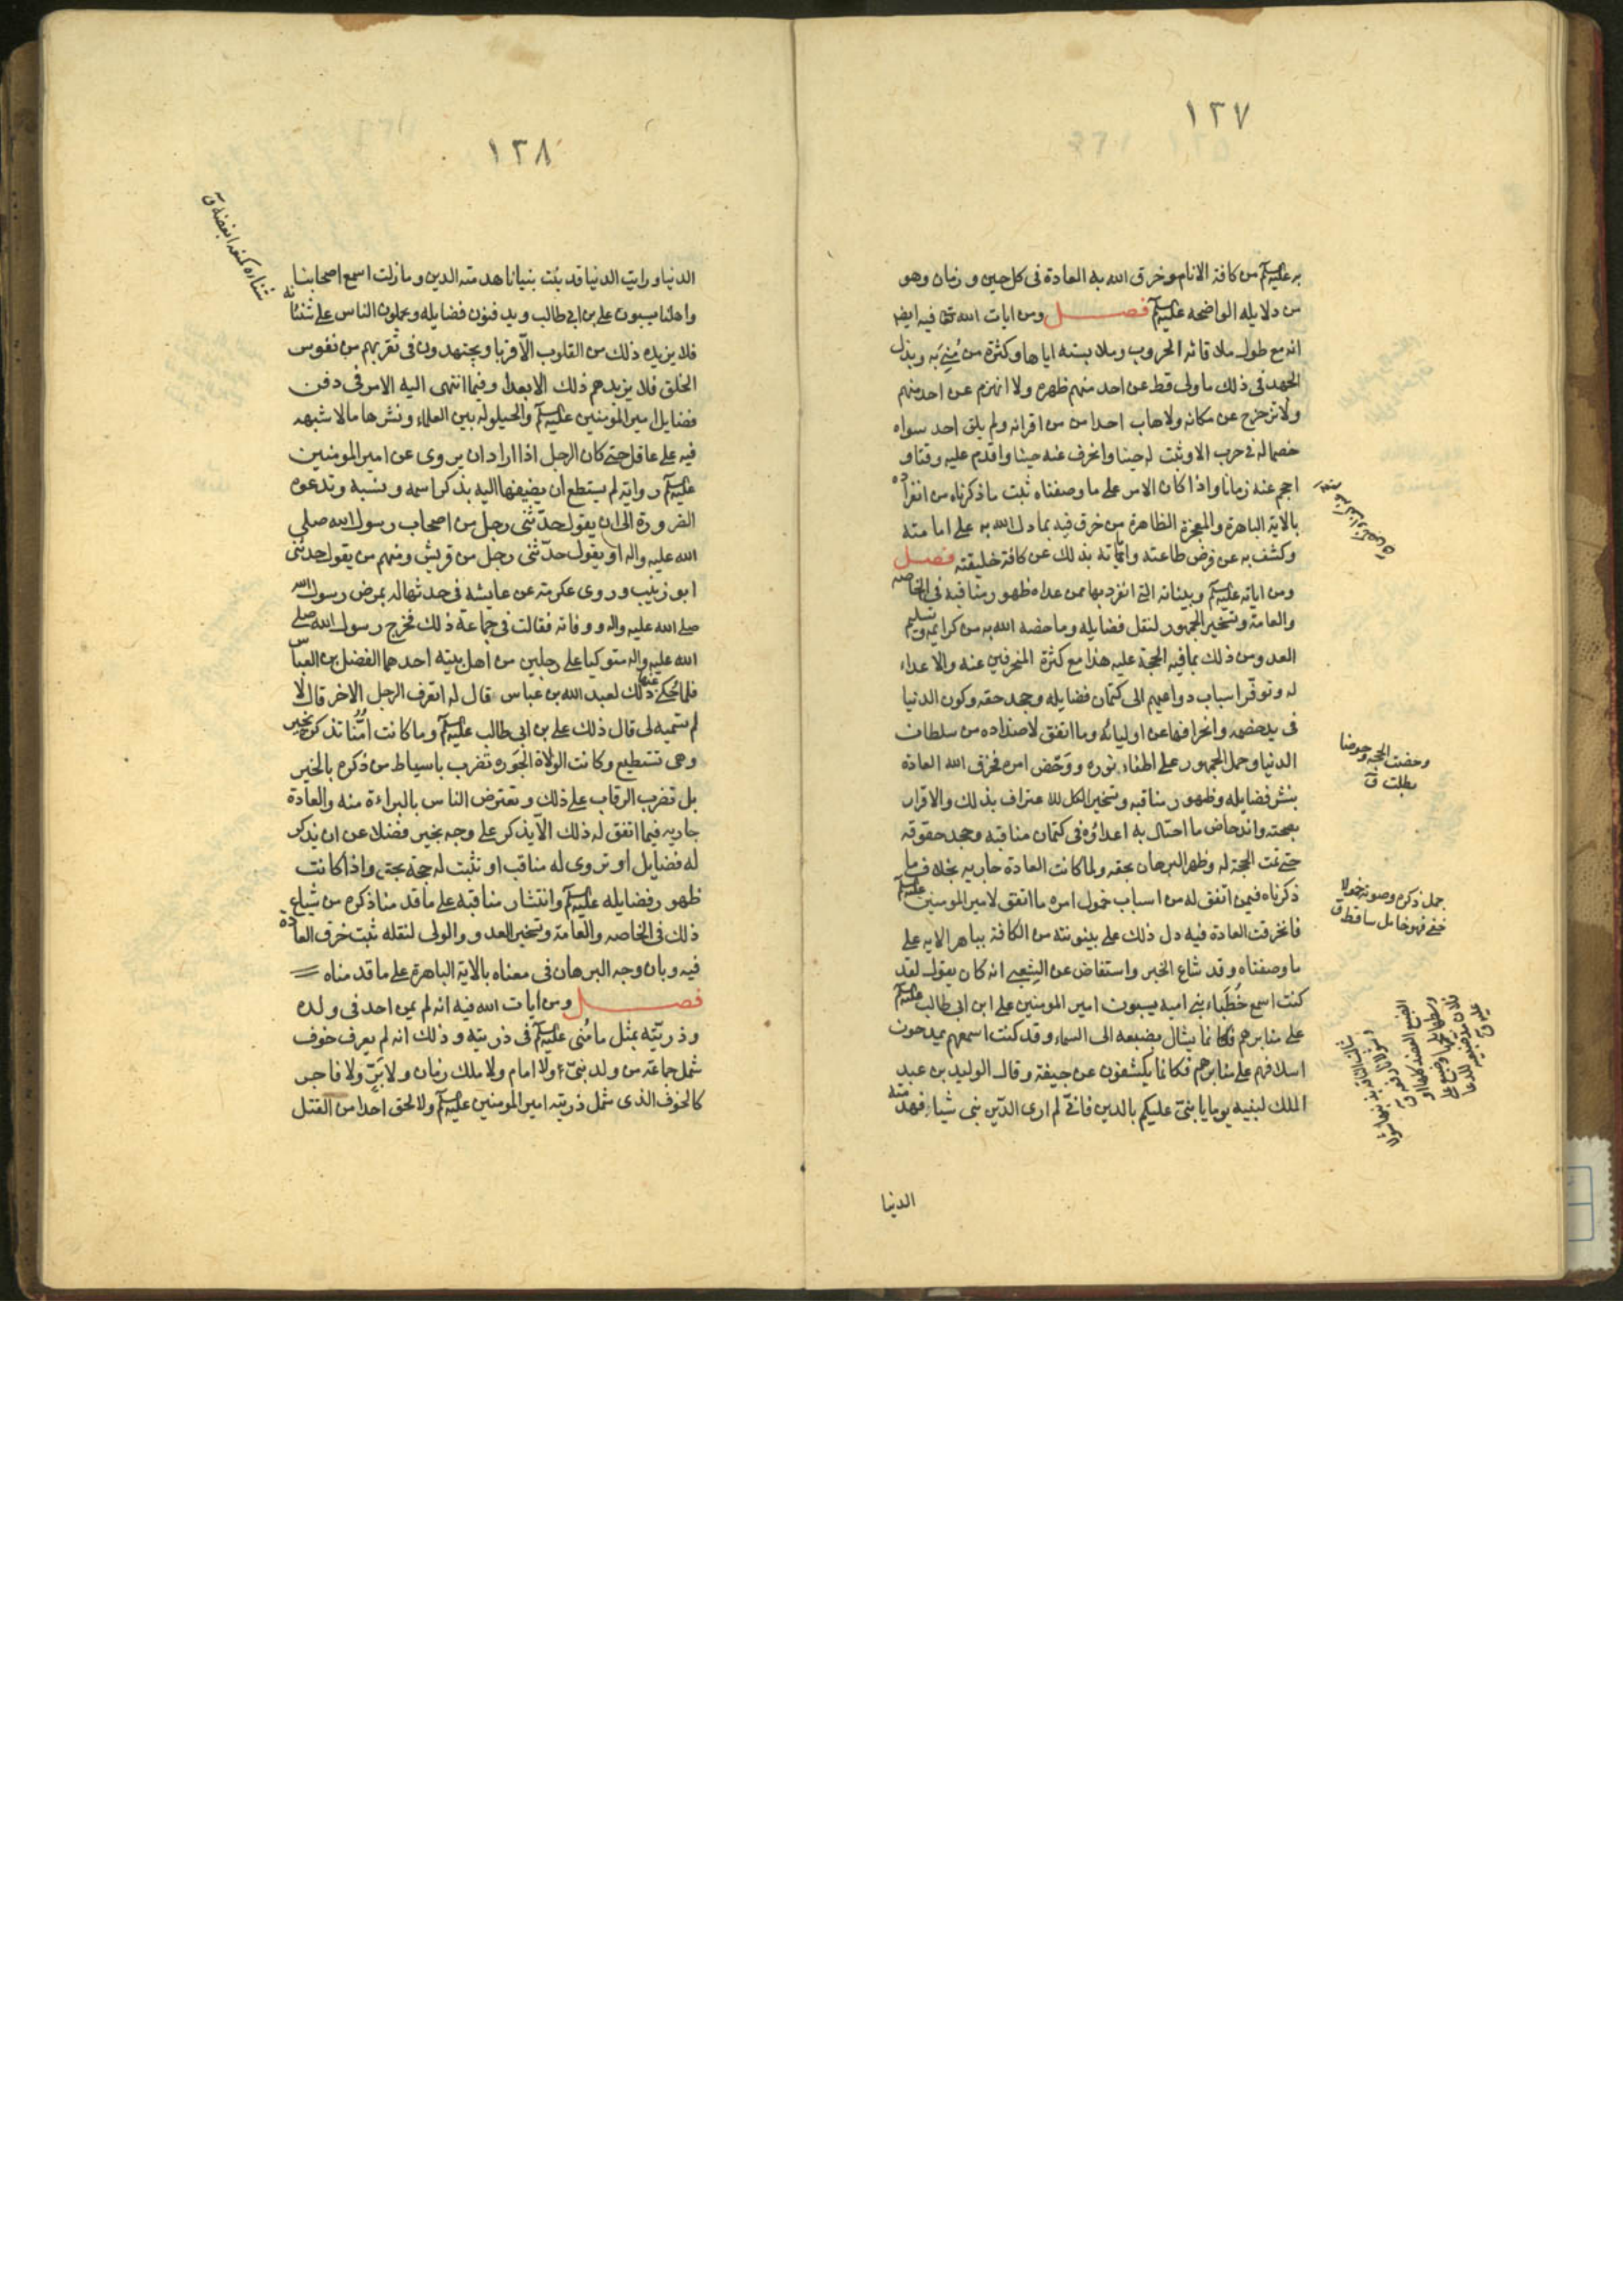 ١٢٧
به عليه السلام من كافة الانام وخرق الله به العادة فى كل حين وزمان وهو
من دلايله الواضحه عليه السلام فصل ومن ايات الله تعالى فيه ايضا
انه مع طول ملاقاته الحروب وملابسته اياها وكثرة من مُنِىَ به وبذل
الجهد فى ذلك ما ولى قط عن احد منهم ظهره ولا انهزم عن احد منهم
ولا تزحزح عن مكانه ولا هاب احدا من اقرانه ولم يلق احد سواه
خصما له فى حرب الا وثبت له حينا وانحرف عنه حينا واقدم عليه وقتا و
احجم عنه زمانا واذا كان الامر على ما وصفناه ثبت ما ذكرناه من انفراده
بالاية الباهرة والمعجزة الظاهرة من خرق فيه بما دل الله به على امامته
وكشف به عن فرض طاعته وابانه بذلك عن كافة خليقته فصل
ومن اياته عليه السلام وبيناته التى انفرد بها ممن عداه ظهور مناقبه فى الخاصه
والعامة وتسخير الجمهور لنقل فضايله وما خصه الله به من كرايمه وتسليم
العدو من ذلك بما فيه الحجة عليه هذا مع كثرة المنحرفين عنه والاعداء
له وتوفّر اسباب دواعيهم الى كتمان فضايله وجحد حقه وكون الدنيا
فى يد خصمه وانحرافها عن اوليائه وما اتفق لاضداده من سلطان
الدنيا وحمل الجمهور على اطفاء نوره ودَحْض امره فخرق الله العادة
بنشر فضايله وظهور مناقبه وتسخير الكل للاعتراف بذلك والاقرار
بصحته واندحاض ما احتال به اعداؤه فى كتمان مناقبه وجحد حقوقه
حتى تمت الحجة له وظهر البرهان بحقه ولما كانت العادة جاريه بخلاف ما
ذكرناه فيمن اتفق له من اسباب خمول امره ما اتفق لامير المومنين عليه السلام
فانخرقت العادة فيه دل ذلك على بينونته من الكافة بباهر الايه على
ما وصفناه وقد شاع الخبر واستفاض عن الشعبى انه كان يقول لقد
كنت اسمع خُطَباء بنى اميه يسبون امير المومنين على ابن ابى طالب عليه السلام
على منابرهم فكانما يشال بضبعه الى السماء وقد كنت اسمعهم يمدحون
اسلافهم على منابرهم فكانما يكشفون عن جيفة وقال الوليد بن عبد
الملك لبنيه يوما يا بنىّ عليكم بالدين فانى لم ارى الدّين بنى شيئا فهدمته
الدنيا
دحضت الحجة دحوضا
بطلت ق
خمل ذكره وصوته خمولا
خفى فهو خامل ساقط ق
١٢٨
الدنيا ورايت الدنيا قد بنت بنيانا هدمته الدين وما زلت اسمع اصحابنا
واهلنا يسبون على بن ابى طالب ويدفنون فضايله ويحملون الناس على شنئانه
فلا يزيده ذلك من القلوب الاّ قربا ويجتهدون فى تقربهم من نفوس
الخلق فلا يزيدهم ذلك الا بعدا وفيما انتهى اليه الامر فى دفن
فضايل امير المومنين عليه السلام والحيلوله بين العلماء ونشرها ما لا شبهه
فيه على عاقل حتى كان الرجل اذا اراد ان يروى عن امير المومنين
عليه السلام رواية لم يستطع ان يضيفها اليه بذكر اسمه ونسبه وتدعوه
الضرورة الى ان يقول حدّثنى رجل من اصحاب رسول الله صلى
الله عليه واله او يقول حدّثنى رجل من قريش ومنهم من يقول حدثنى
ابو زينب وروى عكرمة عن عايشه فى حدثها له بمرض رسول الله
صلى الله عليه واله ووفاته فقالت فى جماعة ذلك فخرج رسول الله صلى
الله عليه واله متوكيا على رجلين من اهل بيته احدهما الفضل بن العباس
فلما حُكى عنها ذلك لعبد الله بن عباس قال له اتعرف الرجل الاخر قال لا
لم تسميه لى قال ذلك على بن ابى طالب عليه السلام وما كانت امُّنا تذكره بخير
وهى تستطيع وكانت الولاة الجَوره تضرب باسياط من ذكره بالخير
بل تضرب الرقاب على ذلك وتعترض الناس بالبراءة منه والعادة
جاريه فيما اتفق له ذلك الاّ يذكر على وجه بخير فضلا عن ان يذكر
له فضايل او تروى له مناقب او تثبت له حجة بحق واذا كانت
ظهور فضايله عليه السلام وانتشار مناقبه على ما قدمنا ذكره من شياع
ذلك فى الخاصه والعامة وتسخير العدو والولى لنقله ثبت خرق العادة
فيه وبان وجه البرهان فى معناه بالاية الباهرة على ما قدمناه
فصل ومن ايات الله فيه انه لم يمن احد فى ولده
وذريّته بمثل ما مُنى عليه السلام فى ذريته وذلك انه لم يعرف خوف
شمل جماعة من ولد نبىّ ولا امام ولا ملك زمان ولا بَرّ ولا فاجر
كالخوف الذى شمل ذريته امير المومنين عليه السلام ولا لحق احدا من القتل
شناه كمنعه ابغضه ق